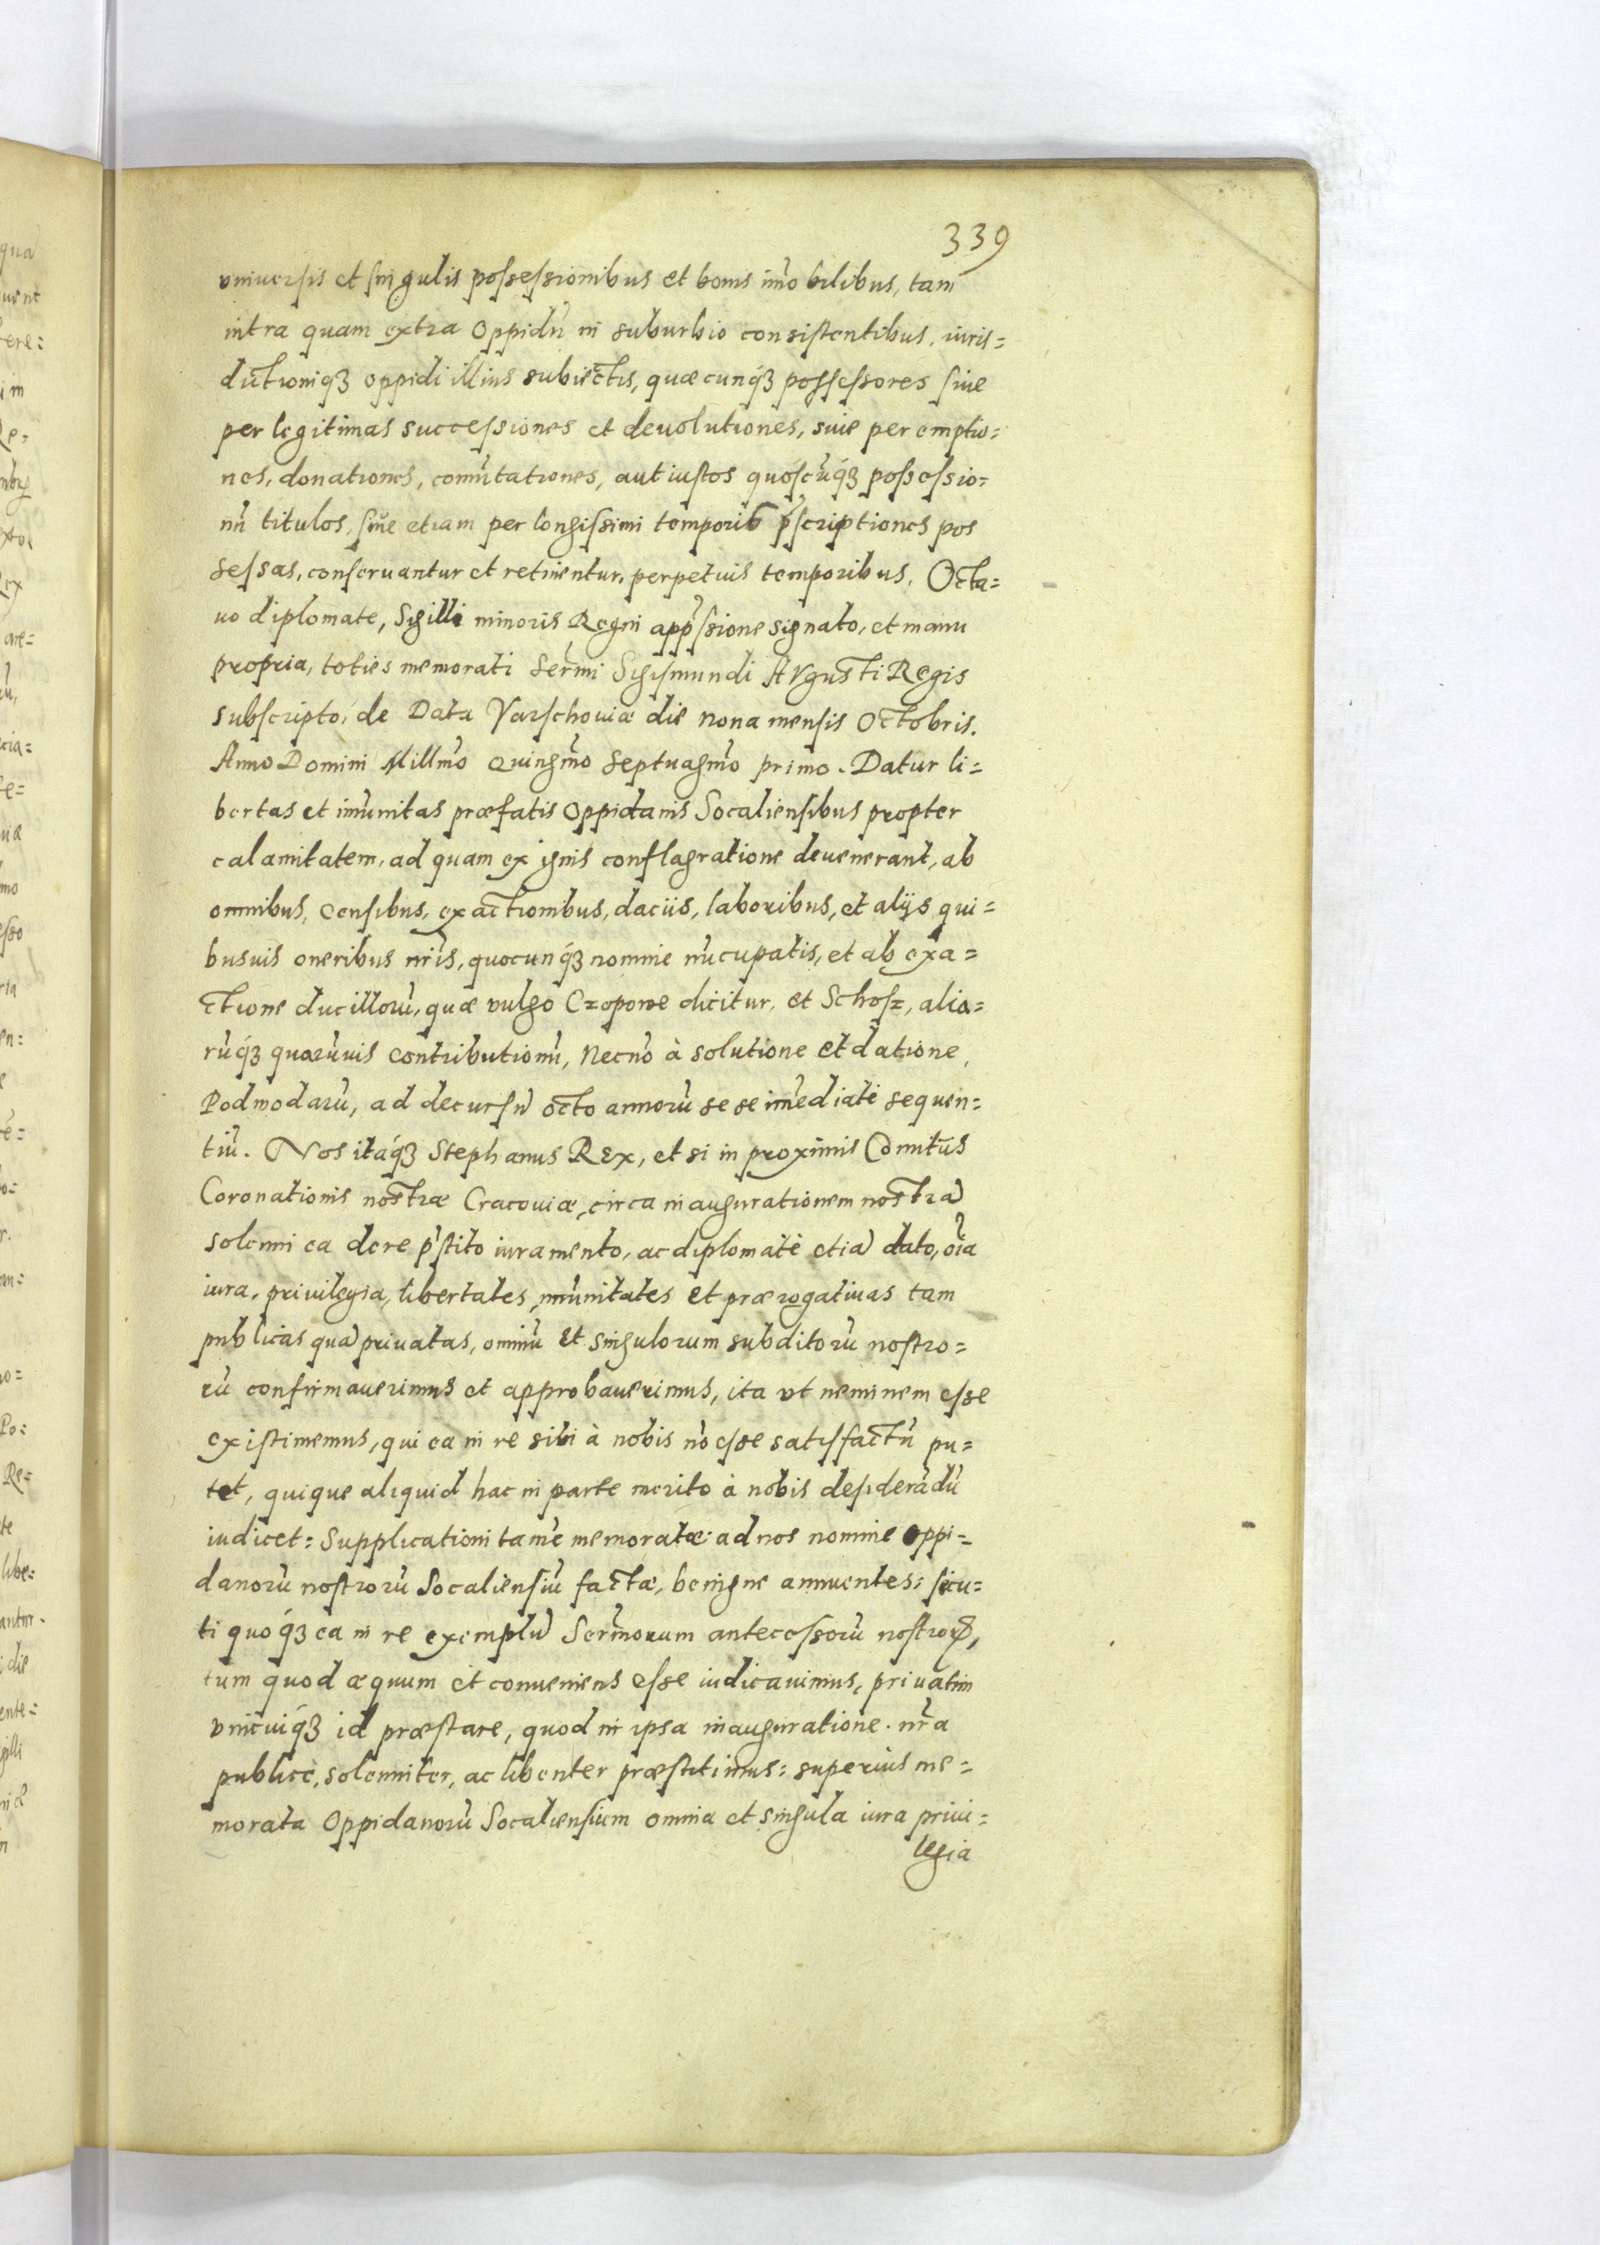 339
vniuersis et singulis possessionibus et bonis im̃obilibus, tam
intra quam extra oppidũ in suburbio consistentibus, iuris=
dictioniq́ꝫ oppidi illius subiectis, quæcunq́ꝫ possessores siue
per legitimas successiones et deuolutiones, siue per emptio=
nes, donationes, com̃utationes, aut iustos quoscũq́ꝫ possessio=
nũ titulos, siue etiam per longissimi temporis p̃scriptiones pos
sessas, conseruantur et retinentur, perpetuis temporibus. Octa=
uo diplomate, Sigilli minoris Regni app̃ssione signato, et manu
propria, toties memorati Serm̃i Sigismundi AVgusti Regis
subscripto, de Data Varschouiæ die nona mensis Octobris.
Anno Domini Millm̃o Quingm̃o Septuagm̃o primo. Datur li=
bertas et im̃unitas præfatis Oppidanis Socaliensibus propter
calamitatem, ad quam ex ignis conflagratione deuenerant, ab
omnibus, censibus, exactionibus, daciis, laboribus, et alijs qui=
busuis oneribus nr̃is, quocunq́ꝫ nomine nũcupatis, et ab exa=
ctione ducillorũ, quæ vulgo Czopowe dicitur, et Schosz, alia=
rũq́ꝫ quarũuis contributionũ, Necnõ à solutione et datione
Podwodarũ, ad decursũ octo annorũ sese im̃ediatè sequen=
tiũ. Nos itaq́ꝫ Stephanus REx, et si in proximis Comitijs
Coronationis nostræ Cracouiæ, circa inaugurationem nostrã
solenni ea de re p̃stito iuramento, ac diplomate etiã dato, oĩa
iura, priuilegia, libertates, im̃unitates et prærogatiuas tam
publicas quã priuatas, omniũ et singulorum subditorũ nostro=
rũ confirmauerimus et approbauerimus, ita vt neminem esse
existimemus, qui ea in re sibi à nobis nõ esse satisfactũ pu=
tet, quique aliquid hac in parte merito à nobis desiderãdũ
iudicet: Supplicationi tamẽ memoratæ ad nos nomine oppi=
danorũ nostrorũ Socaliensiũ factæ, benigne annuentes: secu=
ti quoq́ꝫ ea in re exemplũ Serm̃orum antecessorũ nostroꝝ,
tum quod æquum et conueniens esse iudicauimus, priuatim
vnicuiq́ꝫ id præstare, quod in ipsa inauguratione nr̃a
publicè, solenniter, ac libenter præstitimus: superius me=
morata Oppidanorũ Socaliensium omnia et singula iura priui=
legia